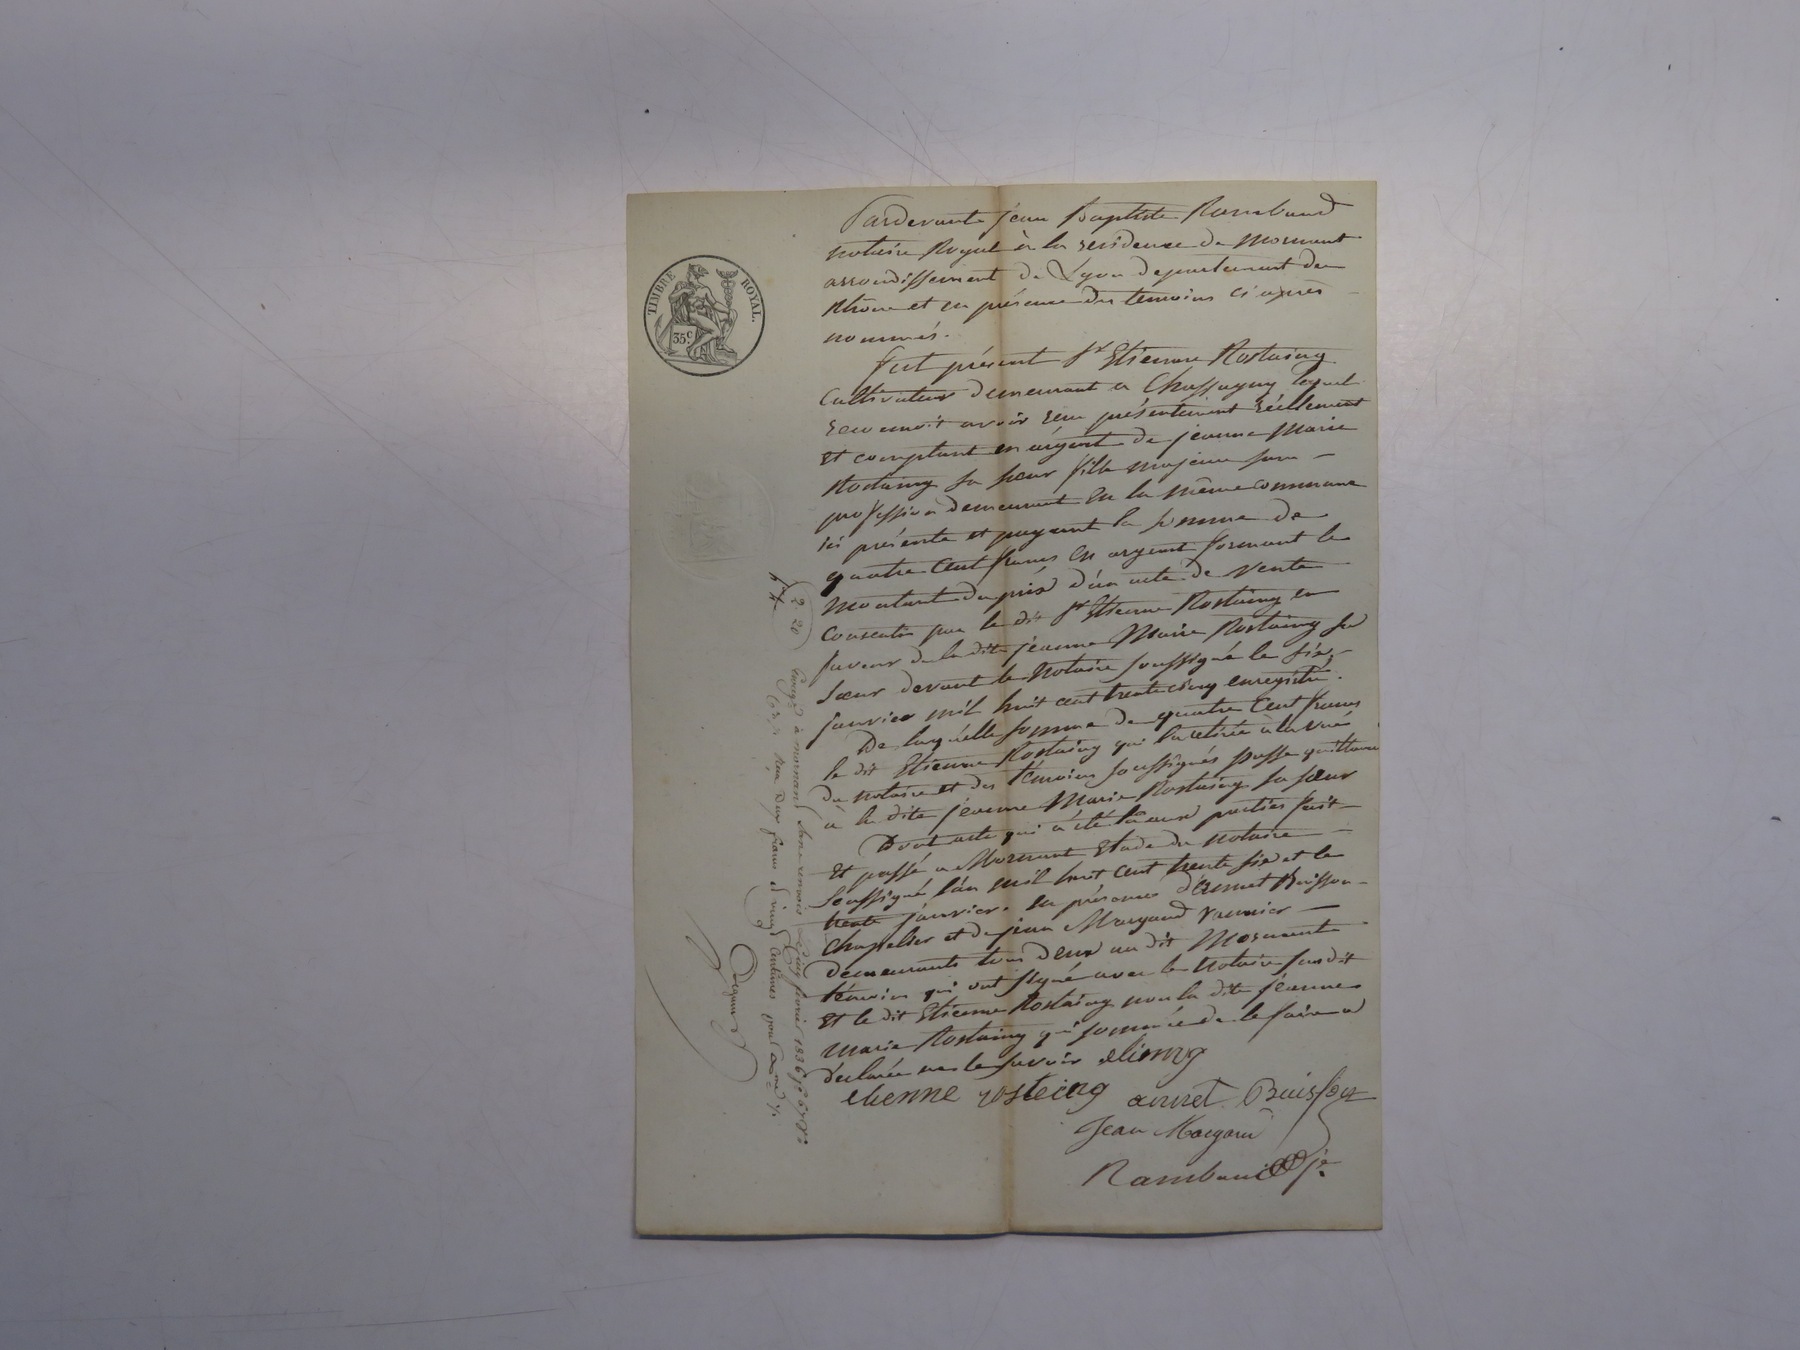 TIMBRE ROYAL.
35 c.
Pardevant Jean Baptiste Rambaud
notaire Royal à la residence de Mornant
arrondissement de Lyon departement du
Rhône et en présence des temoins ci après
nommés.
fut présent Sr Etienne Rostaing
Cultivateur demeurant a Chassagny lequel
reconnoit avoir reçu présentement réellement
et comptant en argent de jeanne Marie
Rostaing sa sœur fille majeure sans
profession demeurant en la même commune
ici présente et payant la somme de
quatre Cent francs en argent formant le
montant du prix d'un acte de vente
Consentie par le dit Sr Etienne Rostaing en
faveur de la dite jeanne Marie Rostaing sa
sœur devant le Notaire soussigné le six
janvier mil huit cent trente cinq enregistré.
De laquelle somme de quatre Cent francs
le dit Etienne Rostaing qui l'a retirée à la vue
du notaire et des témoins soussignés passe quittance
à la dite jeanne Marie Rostaing sa sœur
Dont acte qui a été lu aux parties fait
Et passé a Mornant Etude du notaire
soussigné l'an mil huit cent trente six et le
trente janvier. en présence d'Ennet Buisson
Chapelier et de jean Margaud
demeurants tous deux au dit Mornant
témoins qui ont signé avec le notaire susdit
Et le dit Etienne Rostaing non la dite jeanne
Marie Rostaing qui sommée de le faire a
déclarée ne le savoir
etienne rosteing Buisson
Jean Margaud
Rambaud
2 20
à mornant sans renvois cinq fevrier 1836
Reçu Deux francs & vingt Centimes